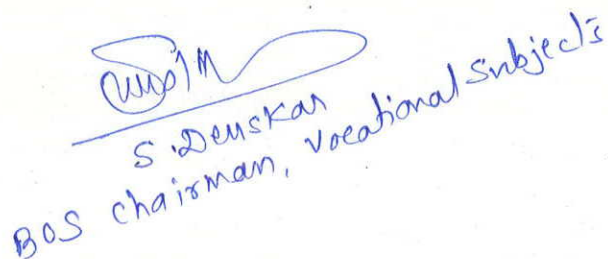 S. Deuskar
BOS chairman, Vocational Subjects